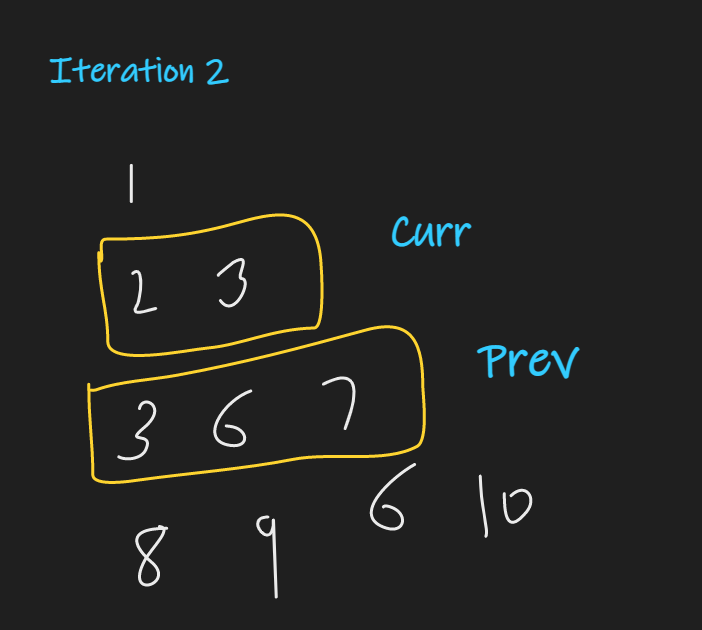 Iteration 2
1
2 3 Curr
3 6 7 Prev
8 9 6 10